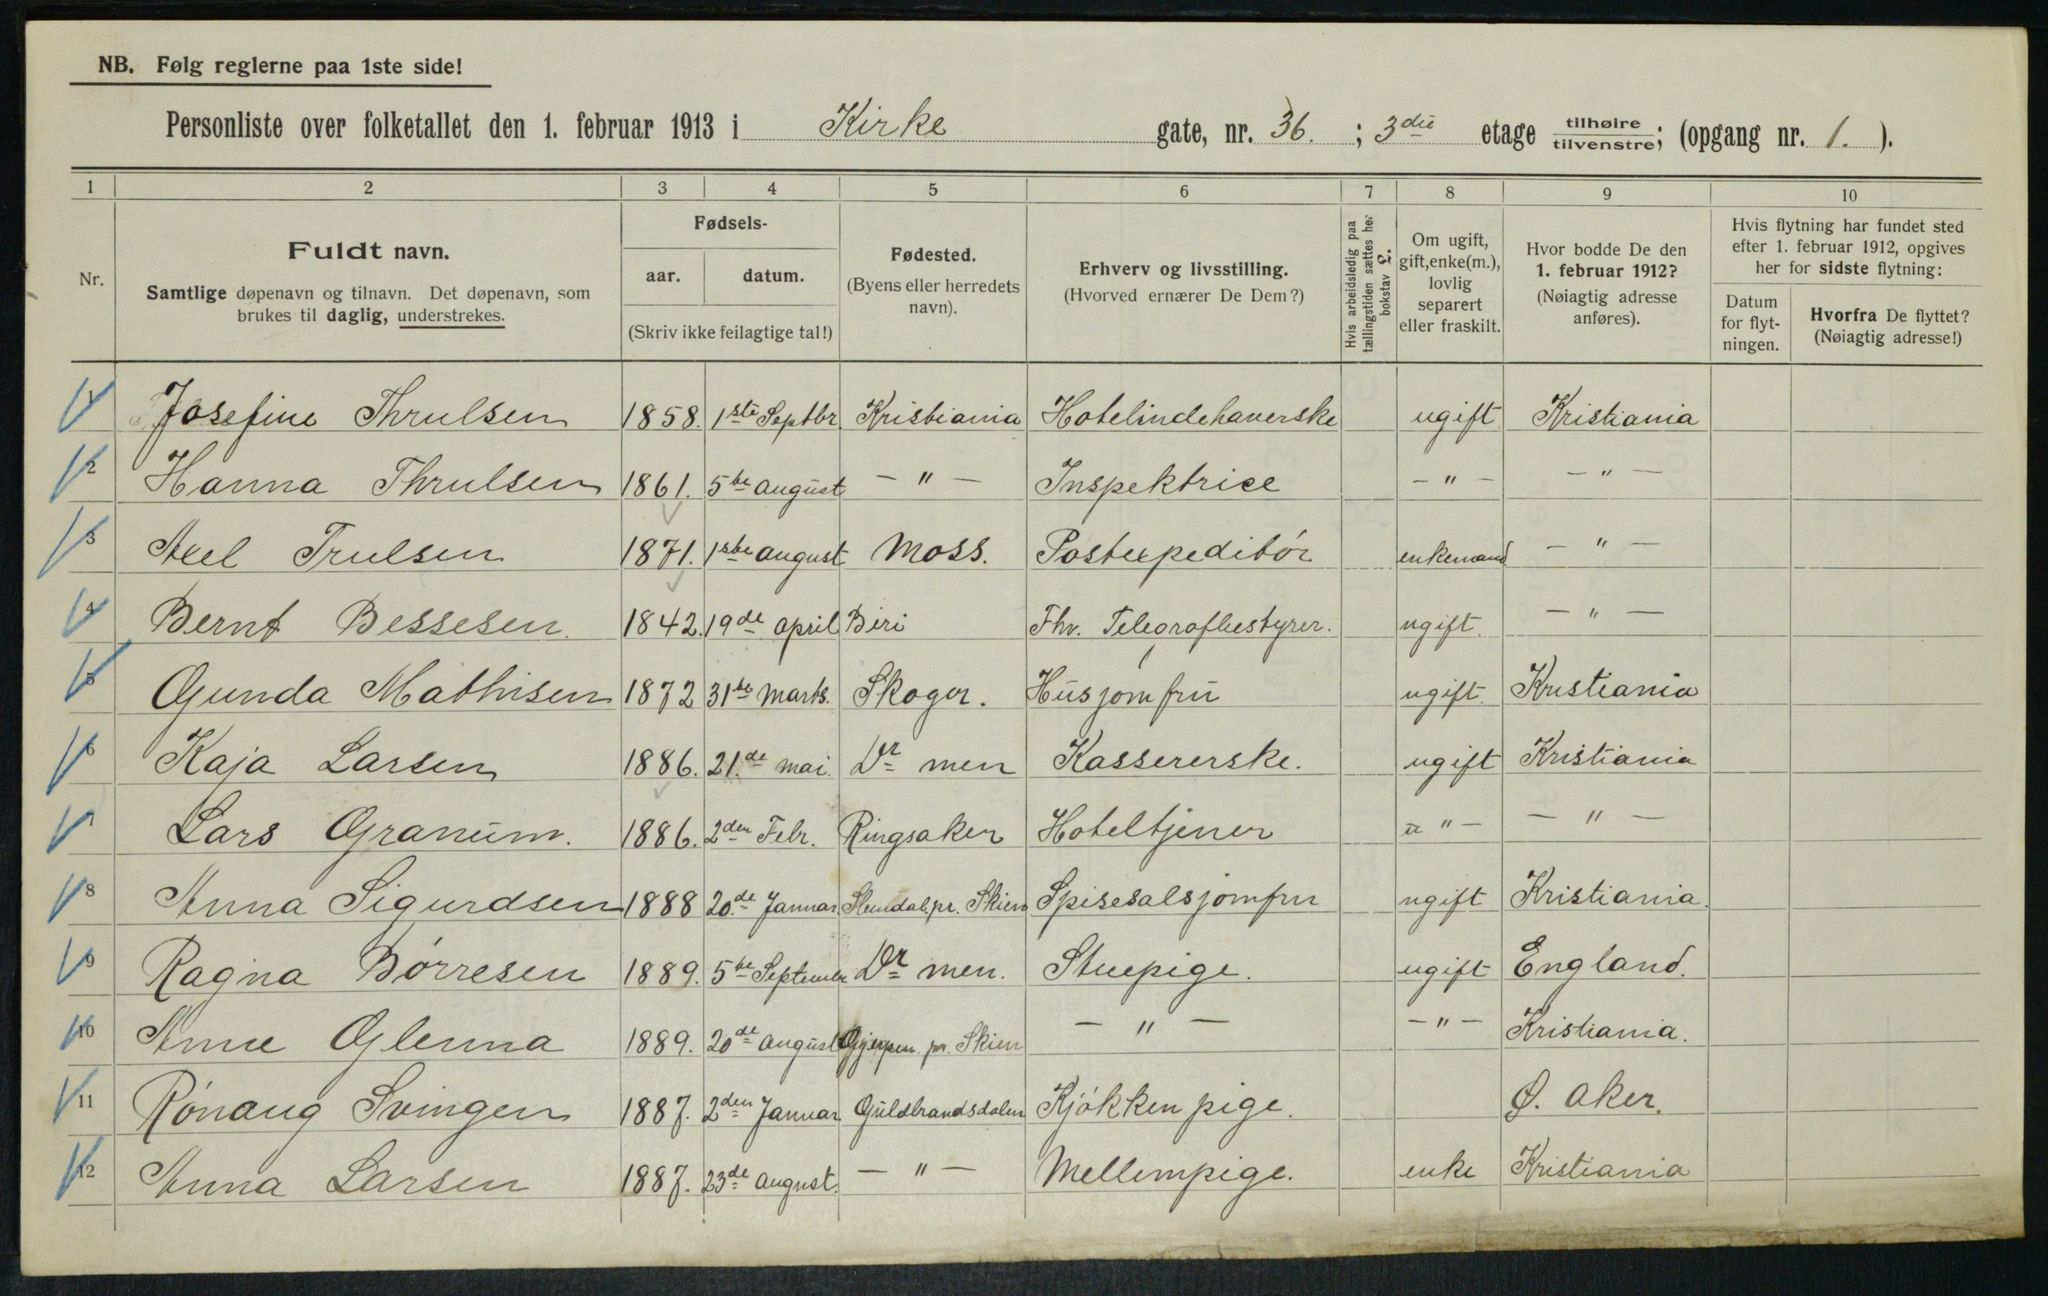 NB. Følg reglerne paa 1ste side!
Personliste over folketallet den 1. februar 1913 i Kirke gate, nr. 36. ; 3die etage tilhøire/tilvenstre; (opgang nr. 1. ).
1 2 3 4 5 6 7 8 9 10
Nr.
Fuldt navn.
Samtlige døpenavn og tilnavn. Det døpenavn, som
brukes til daglig, understrekes.
Fødsels-
aar. datum.
(Skriv ikke feilagtige tal!)
Fødested.
(Byens eller herredets
navn).
Erhverv og livsstilling.
(Hvorved ernærer De Dem?)
Hvis arbeidsledig paa
tællingstiden sættes her
bokstav L.
Om ugift,
gift, enke(m.),
lovlig
separert
eller fraskilt.
Hvor bodde De den
1. februar 1912?
(Nøiagtig adresse
anføres).
Hvis flytning har fundet sted
efter 1. februar 1912, opgives
her for sidste flytning:
Datum
for flyt-
ningen.
Hvorfra De flyttet?
(Nøiagtig adresse!)
1 Josefine Thrulsen 1858. 1ste Septbr. Kristiania Hotelindehaverske ugift Kristiania
2 Hanna Thrulsen 1861. 5te august — " — Inspektrice — " — — " —
3 Axel Trulsen 1871. 1ste august Moss. Postexpeditör enkemand — " —
4 Bernt Bessesen. 1842. 19de april Biri Fhv. Telegrafbestyrer. ugift. — " —
5 Gunda Mathisen 1872 31te Marts. Skoger. Husjomfru ugift. Kristiania
6 Kaja Larsen 1886. 21.de mai. Dr men Kassererske. ugift Kristiania
7 Lars Granum. 1886. 2den Febr. Ringsaker Hoteltjener u " — — " —
8 Anna Sigurdsen 1888 20.de Januar. pr. Skien Spisesalsjomfru ugift Kristiania.
9 Ragna Börresen 1889. 5te September Dr men. Stuepige. ugift England.
10 Anne Glenna 1889. 20de august Gjerpen pr. Skien — " — — " — Kristiania.
11 Rönaug Svingen 1887. 2den Januar Guldbrandsdalen Kjökkenpige. Ø. Aker.
12 Anna Larsen 1887. 23de august. — " — Mellempige. enke Kristiania